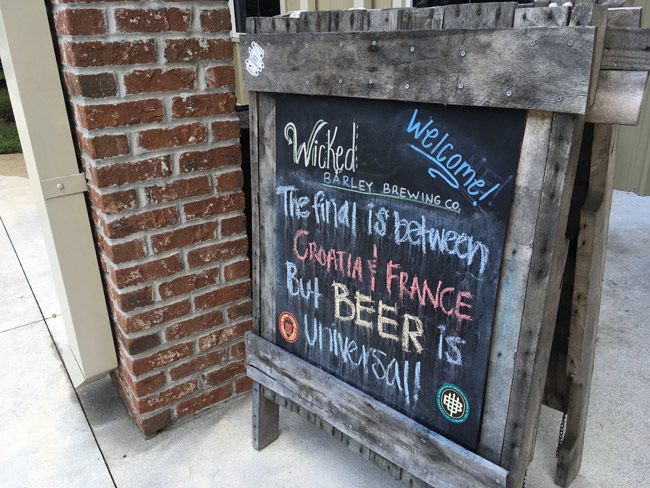 Wicked
Welcome!
BARLEY BREWING CO.
The final is between
CROATIA & FRANCE
But BEER is
universal!